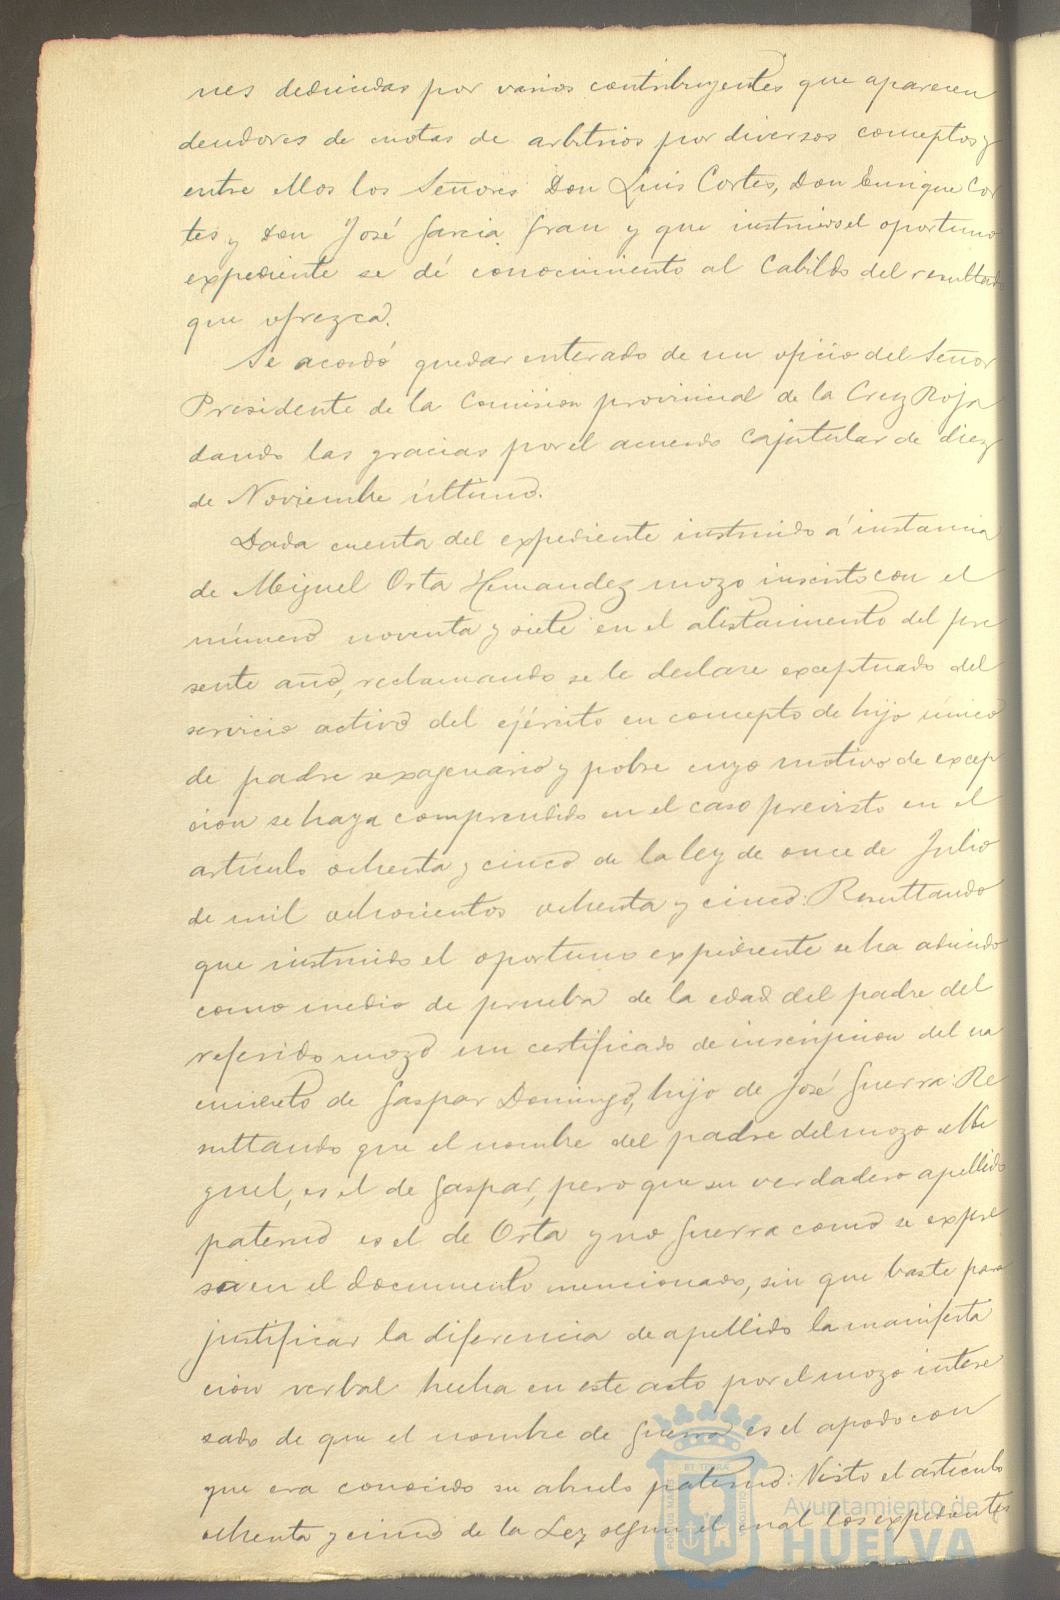 nes deducidas por varios contribuyentes que aparecen
deudores de cuotas de arbitrios por diversos conceptos y
entre ellos los Señores Don Luis Cortes, Don Enrique Cor
tes y Don José Garcia Gran y que instruirsel oportuno
expediente se dé conocimiento al Cabildo del resultado
que ofrezca.
Se acordó quedar enterado de un oficio del Señor
Presidente de la Comision provincial de la Cruz Roja
dando las gracias por el acuerdo capitular de diez
de Noviembre último.
Dada cuenta del expediente instruido á instancia
de Miguel Orta Hernandez mozo inscrito con el
número noventa y siete en el alistamiento del pre
sente año, reclamando se le declare exceptuado del
servicio activo del ejército en concepto de hijo único
de padre sexagenario y pobre cuyo motivo de excep
cion se haya comprendido en el caso previsto en el
artículo ochenta y cinco de la ley de once de Julio
de mil ochocientos ochenta y cinco: Resultando
que instruido el oportuno expediente se ha aducido
como medio de prueba de la edad del padre del
referido mozo un certificado de inscripcion del na
cimiento de Gaspar Domingo, hijo de José Guerra: Re
sultando que el nombre del padre del mozo Mi
guel, es el de Gaspar, pero que su verdadero apellido
paterno es el de Orta y no Guerra como se expre
sa en el documento mencionado, sin que baste para
justificar la diferencia de apellido la manifesta
cion verbal hecha en este acto por el mozo intere
sado de que el nombre de Guerra es el apodo con
que era conocido su abuelo paterno: Visto el artículo
ochenta y cinco de la Ley segun el cual los expedientes
PORTUS MARIS ET TERRÆ CUSTODIA
Ayuntamiento de
HUELVA